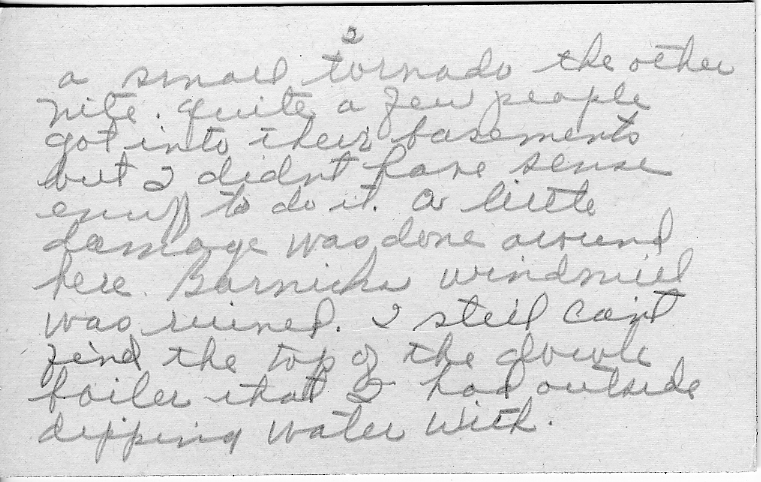 2
a small tornado the other
nite. Quite a few people
got into their basements
but I didn't have sense
enuff to do it. A little
damage was done around
here. windmill
was ruined. I still can't
find the top of the double
boiler that I had outside
dipping water with.